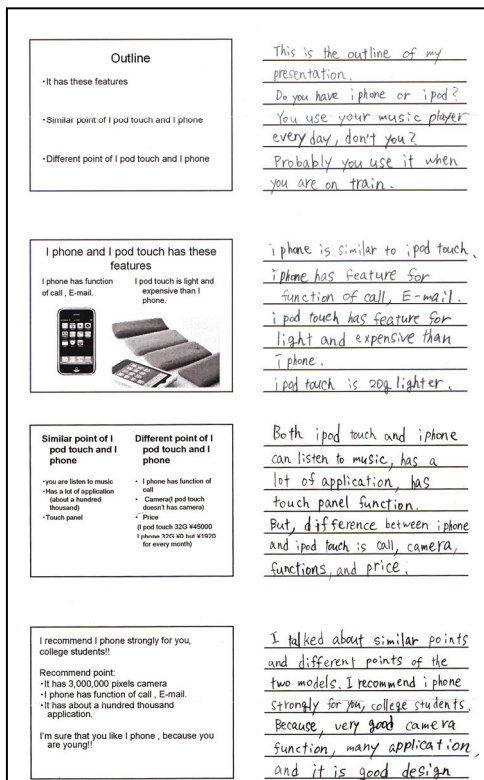 Outline
•It has these features
•Similar point of I pod touch and I phone
•Different point of I pod touch and I phone
This is the outline of my
presentation.
Do you have iphone or ipod?
You use your music player
every day, don't you?
Probably you use it when
you are on train.
I phone and I pod touch has these
features
I phone has function
of call , E-mail.
I pod touch is light and
expensive than I
phone.
iphone is similar to ipod touch.
iphone has feature for
function of call, E-mail.
ipod touch has feature for
light and expensive than
iphone.
ipod touch is 20g lighter.
Similar point of I
pod touch and I
phone
•you are listen to music
•Has a lot of application
(about a hundred
thousand)
•Touch panel
Different point of I
pod touch and I
phone
• I phone has function of
call
• Camera(I pod touch
doesn't has camera)
• Price
(I pod touch 32G ¥45000
I phone 32G ¥0 but ¥1920
for every month)
Both ipod touch and iphone
can listen to music, has a
lot of application, has
touch panel function.
But, difference between iphone
and ipod touch is call, camera,
functions, and price.
I recommend I phone strongly for you,
college students!!
Recommend point:
•It has 3,000,000 pixels camera
•I phone has function of call , E-mail.
•It has about a hundred thousand
application.
I'm sure that you like I phone , because you
are young!!
I talked about similar points
and different points of the
two models. I recommend iphone
strongly for you, college students.
Because, very good camera
function, many application,
and it is good design